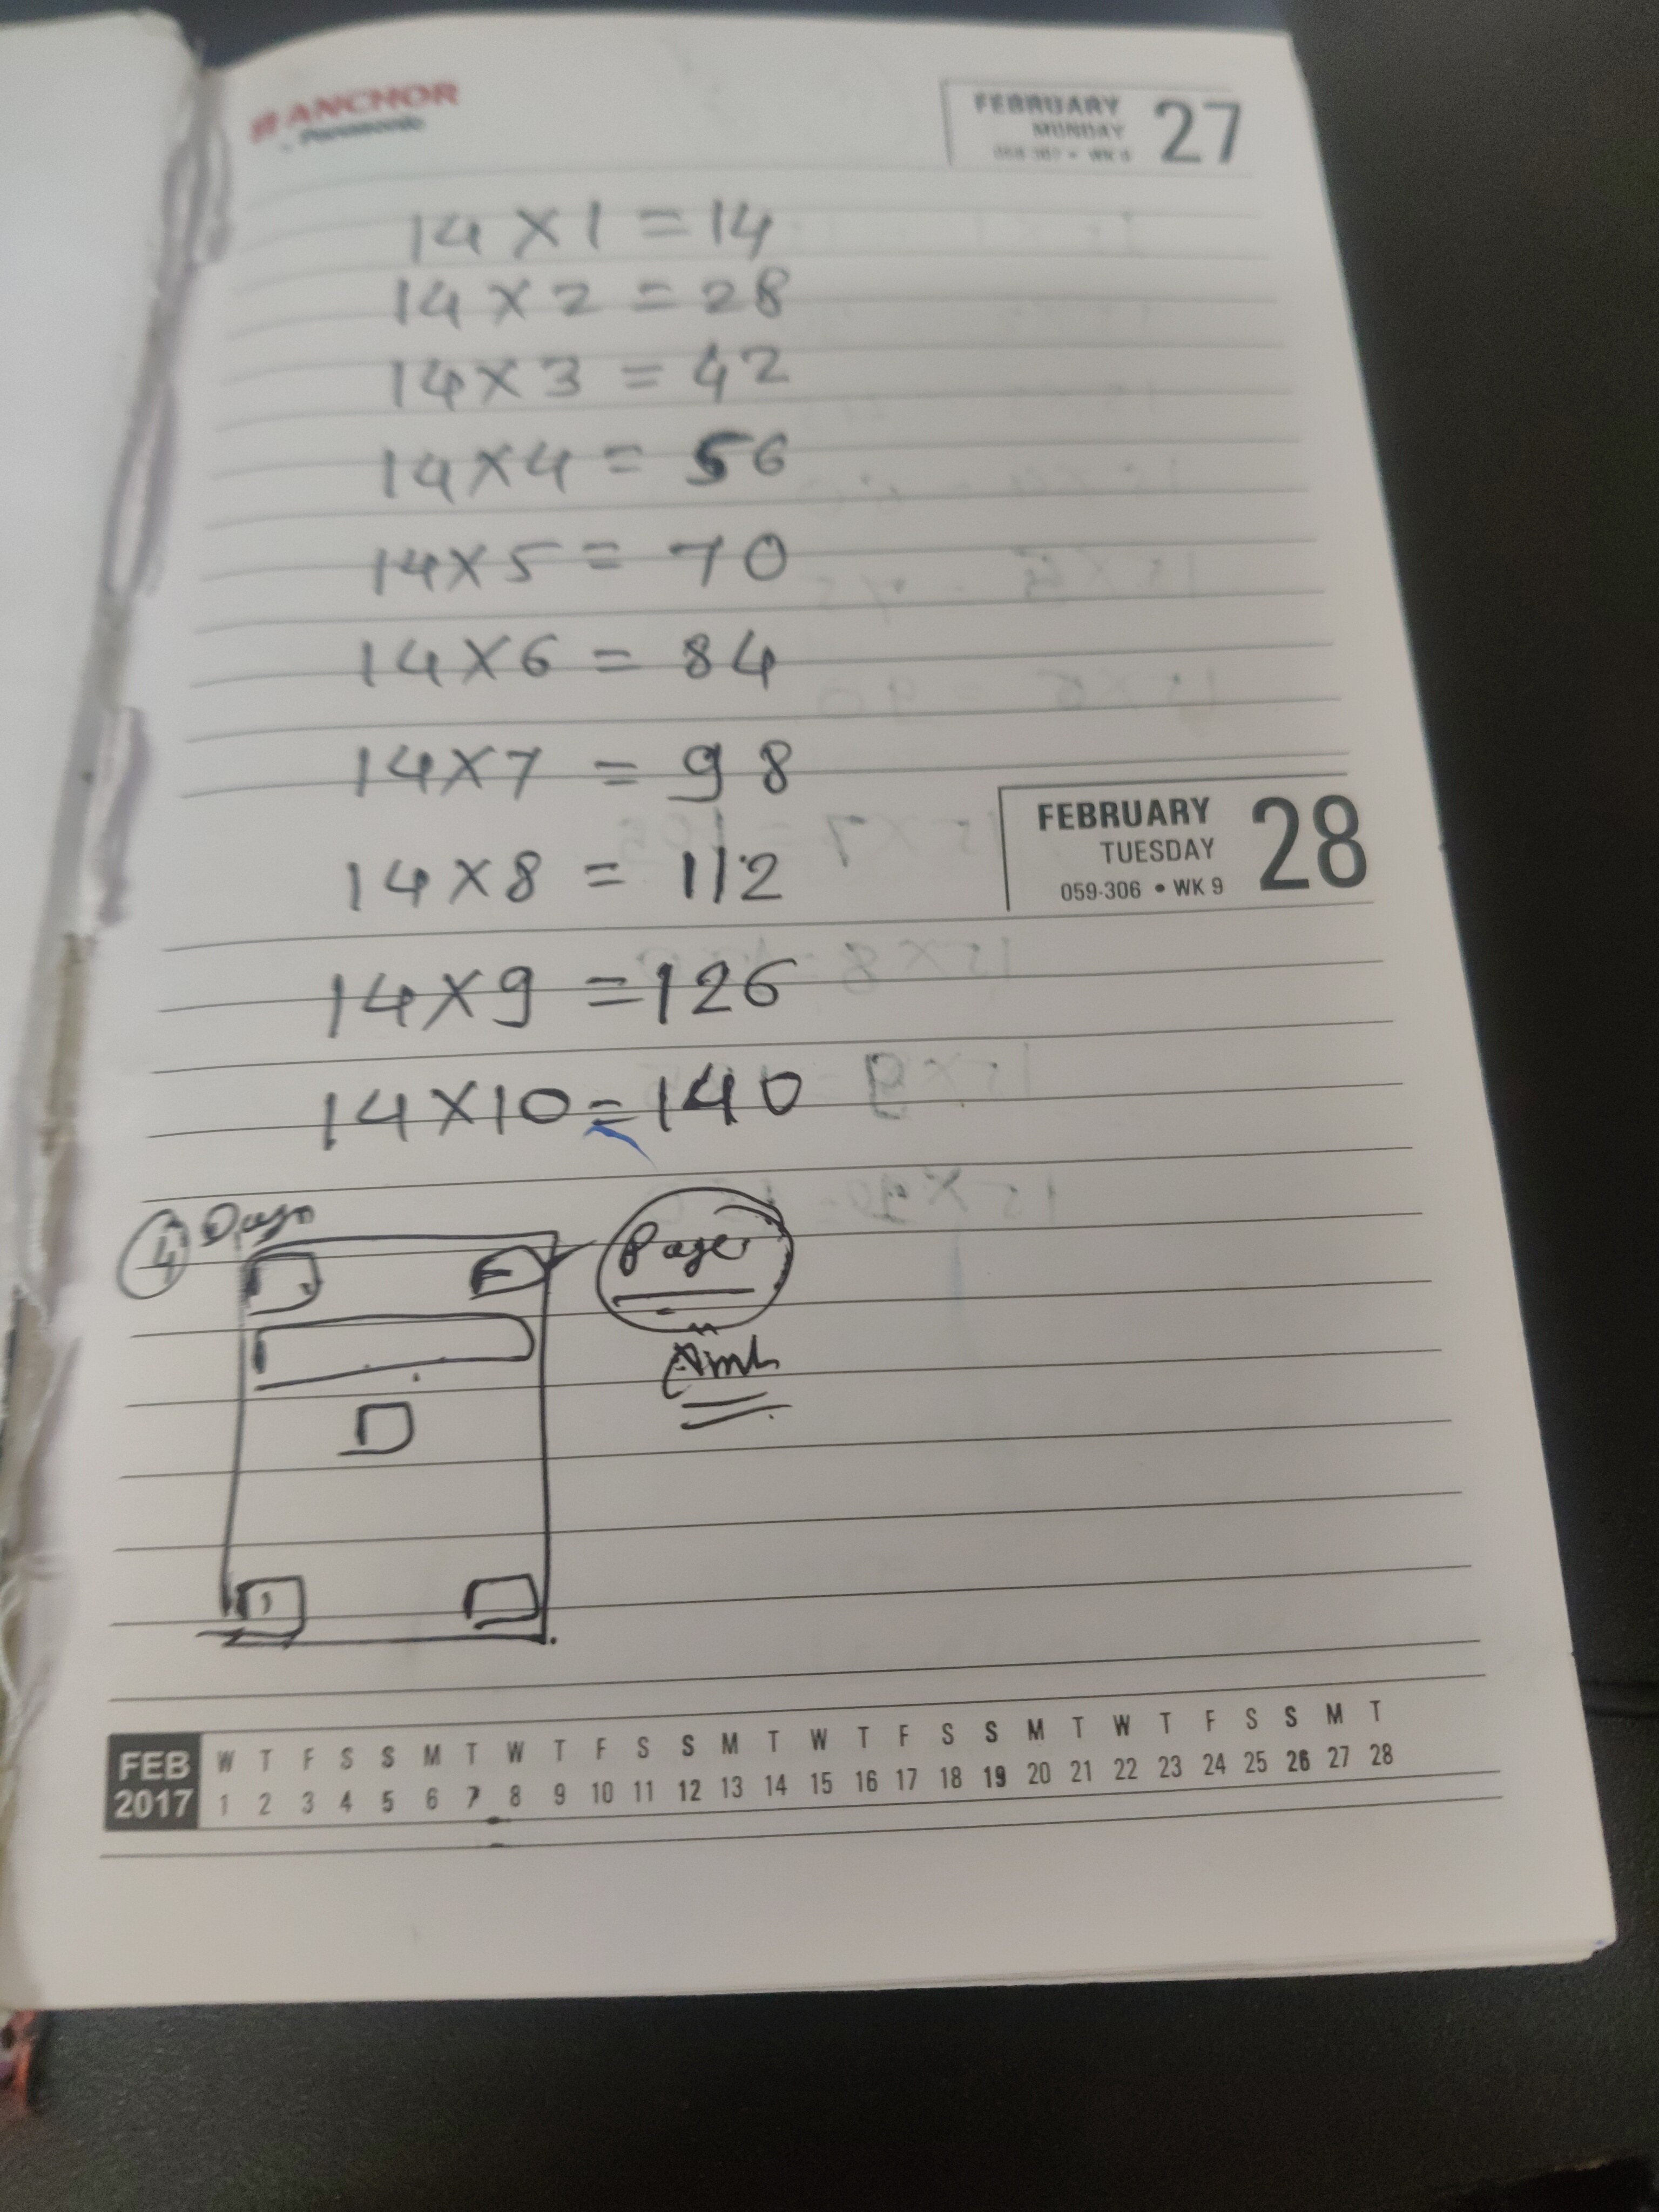 ANCHOR
Panasonic
FEBRUARY 27
MONDAY
14 X 1 = 14
14 X 2 = 28
14 X 3 = 42
14 X 4 = 56
14 X 5 = 70
14 X 6 = 84
14 X 7 = 98
FEBRUARY 28
TUESDAY
059-306 • WK 9
14 X 8 = 112
14 X 9 = 126
14 X 10 = 140
4 Days
Page
FEB W T F S S M T W T F S S M T W T F S S M T W T F S S M T
2017 1 2 3 4 5 6 7 8 9 10 11 12 13 14 15 16 17 18 19 20 21 22 23 24 25 26 27 28